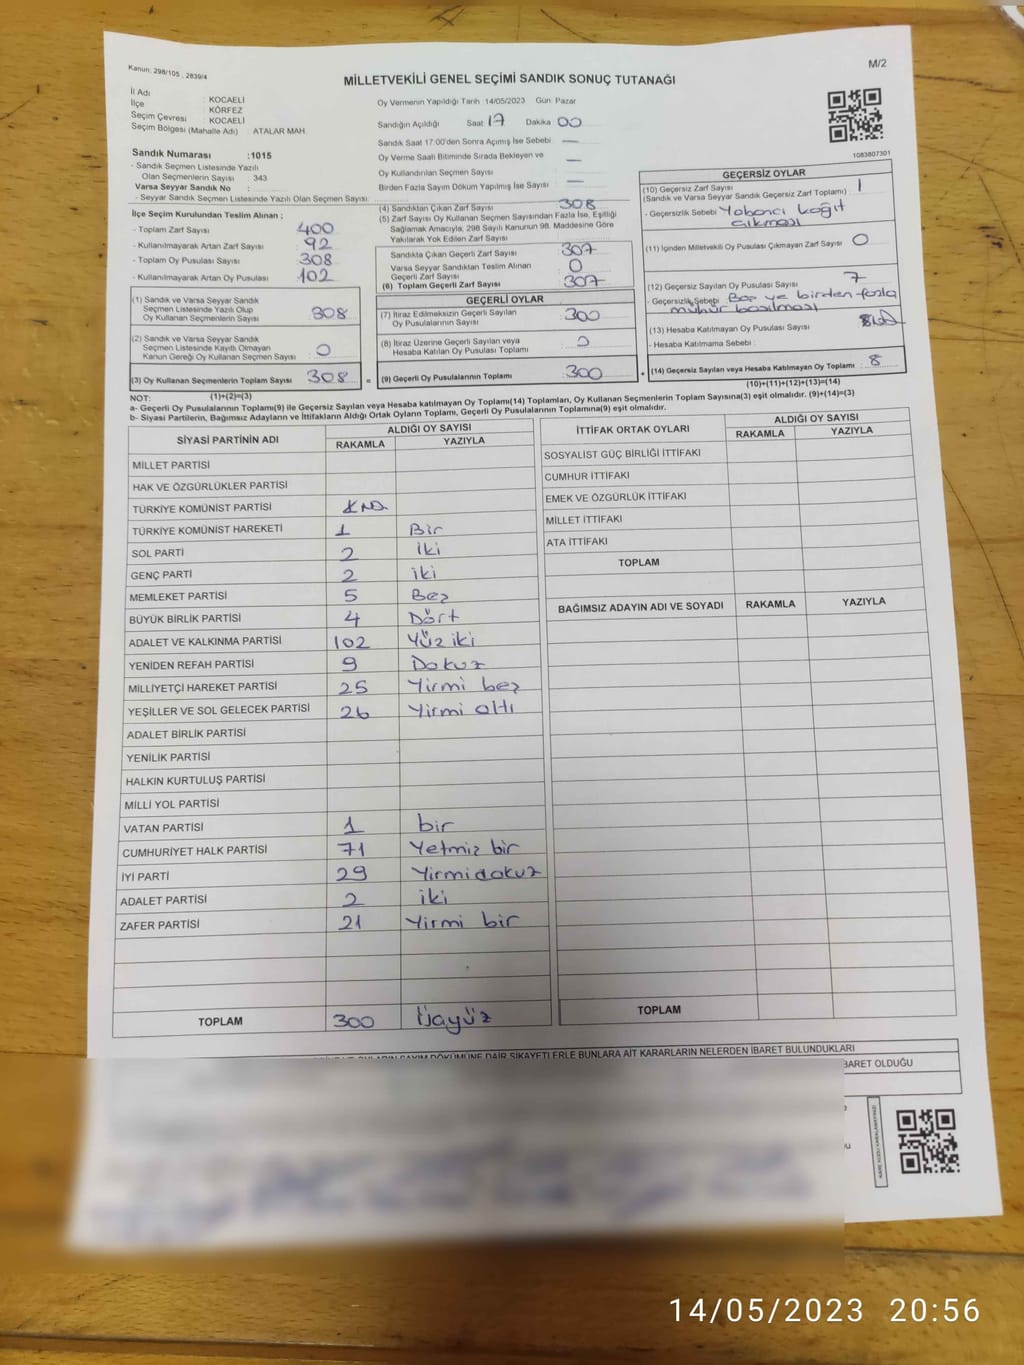 Kanun: 298/105 , 2839/4
M/2
MİLLETVEKİLİ GENEL SEÇİMİ SANDIK SONUÇ TUTANAĞI
İl Adı : KOCAELİ
İlçe : KÖRFEZ
Seçim Çevresi : KOCAELİ
Seçim Bölgesi (Mahalle Adı) : ATALAR MAH.
Oy Vermenin Yapıldığı Tarih 14/05/2023 Gün Pazar
Sandığın Açıldığı Saat 17 Dakika 00
Sandık Saat 17:00'den Sonra Açımış İse Sebebi —
Oy Verme Saati Bitiminde Sırada Bekleyen ve
Oy Kullandırılan Seçmen Sayısı —
Birden Fazla Sayım Döküm Yapılmış İse Sayısı —
1083807301
Sandık Numarası :1015
- Sandık Seçmen Listesinde Yazılı
Olan Seçmenlerin Sayısı : 343
Varsa Seyyar Sandık No :
- Seyyar Sandık Seçmen Listesinde Yazılı Olan Seçmen Sayısı :
İlçe Seçim Kurulundan Teslim Alınan ;
- Toplam Zarf Sayısı 400
- Kullanılmayarak Artan Zarf Sayısı 92
- Toplam Oy Pusulası Sayısı 308
- Kullanılmayarak Artan Oy Pusulası 102
(1) Sandık ve Varsa Seyyar Sandık
Seçmen Listesinde Yazılı Olup
Oy Kullanan Seçmenlerin Sayısı 308
(2) Sandık ve Varsa Seyyar Sandık
Seçmen Listesinde Kayıtlı Olmayan
Kanun Gereği Oy Kullanan Seçmen Sayısı 0
(3) Oy Kullanan Seçmenlerin Toplam Sayısı 308 =
(4) Sandıktan Çıkan Zarf Sayısı 308
(5) Zarf Sayısı Oy Kullanan Seçmen Sayısından Fazla İse, Eşitliği
Sağlamak Amacıyla, 298 Sayılı Kanunun 98. Maddesine Göre
Yakılarak Yok Edilen Zarf Sayısı
Sandıkta Çıkan Geçerli Zarf Sayısı 307
Varsa Seyyar Sandıktan Teslim Alınan
Geçerli Zarf Sayısı 0
(6) Toplam Geçerli Zarf Sayısı 307
GEÇERLİ OYLAR
(7) İtiraz Edilmeksizin Geçerli Sayılan
Oy Pusulalarının Sayısı 300
(8) İtiraz Üzerine Geçerli Sayılan veya
Hesaba Katılan Oy Pusulası Toplamı 0
(9) Geçerli Oy Pusulalarının Toplamı 300 +
GEÇERSİZ OYLAR
(10) Geçersiz Zarf Sayısı 1
(Sandık ve Varsa Seyyar Sandık Geçersiz Zarf Toplamı)
- Geçersizlik Sebebi Yabancı kağıt
çıkması
(11) İçinden Milletvekili Oy Pusulası Çıkmayan Zarf Sayısı 0
(12) Geçersiz Sayılan Oy Pusulası Sayısı 7
- Geçersizlik Sebebi Boş ve birden fazla
mühür basılması
(13) Hesaba Katılmayan Oy Pusulası Sayısı
- Hesaba Katılmama Sebebi :
(14) Geçersiz Sayılan veya Hesaba Katılmayan Oy Toplamı 8
(10)+(11)+(12)+(13)=(14)
NOT: (1)+(2)=(3)
a- Geçerli Oy Pusulalarının Toplamı(9) ile Geçersiz Sayılan veya Hesaba katılmayan Oy Toplamı(14) Toplamları, Oy Kullanan Seçmenlerin Toplam Sayısına(3) eşit olmalıdır. (9)+(14)=(3)
b- Siyasi Partilerin, Bağımsız Adayların ve İttifakların Aldığı Oy Sayısı, Ortak Oyların Toplamı, Geçerli Oy Pusulalarının Toplamına(9) eşit olmalıdır.
SİYASİ PARTİNİN ADI ALDIĞI OY SAYISI
RAKAMLA YAZIYLA
MİLLET PARTİSİ
HAK VE ÖZGÜRLÜKLER PARTİSİ
TÜRKİYE KOMÜNİST PARTİSİ
TÜRKİYE KOMÜNİST HAREKETİ 1 Bir
SOL PARTİ 2 iki
GENÇ PARTİ 2 iki
MEMLEKET PARTİSİ 5 Beş
BÜYÜK BİRLİK PARTİSİ 4 Dört
ADALET VE KALKINMA PARTİSİ 102 Yüz iki
YENİDEN REFAH PARTİSİ 9 Dokuz
MİLLİYETÇİ HAREKET PARTİSİ 25 Yirmi beş
YEŞİLLER VE SOL GELECEK PARTİSİ 26 Yirmi altı
ADALET BİRLİK PARTİSİ
YENİLİK PARTİSİ
HALKIN KURTULUŞ PARTİSİ
MİLLİ YOL PARTİSİ
VATAN PARTİSİ 1 bir
CUMHURİYET HALK PARTİSİ 71 Yetmiş bir
İYİ PARTİ 29 Yirmidokuz
ADALET PARTİSİ 2 iki
ZAFER PARTİSİ 21 Yirmi bir
TOPLAM 300 Üçyüz
İTTİFAK ORTAK OYLARI ALDIĞI OY SAYISI
RAKAMLA YAZIYLA
SOSYALİST GÜÇ BİRLİĞİ İTTİFAKI
CUMHUR İTTİFAKI
EMEK VE ÖZGÜRLÜK İTTİFAKI
MİLLET İTTİFAKI
ATA İTTİFAKI
TOPLAM
BAĞIMSIZ ADAYIN ADI VE SOYADI RAKAMLA YAZIYLA
TOPLAM
SAYIM DÖKÜMÜNE DAİR ŞİKAYETLERLE BUNLARA AİT KARARLARIN NELERDEN İBARET BULUNDUKLARI
BARET OLDUĞU
14/05/2023 20:56